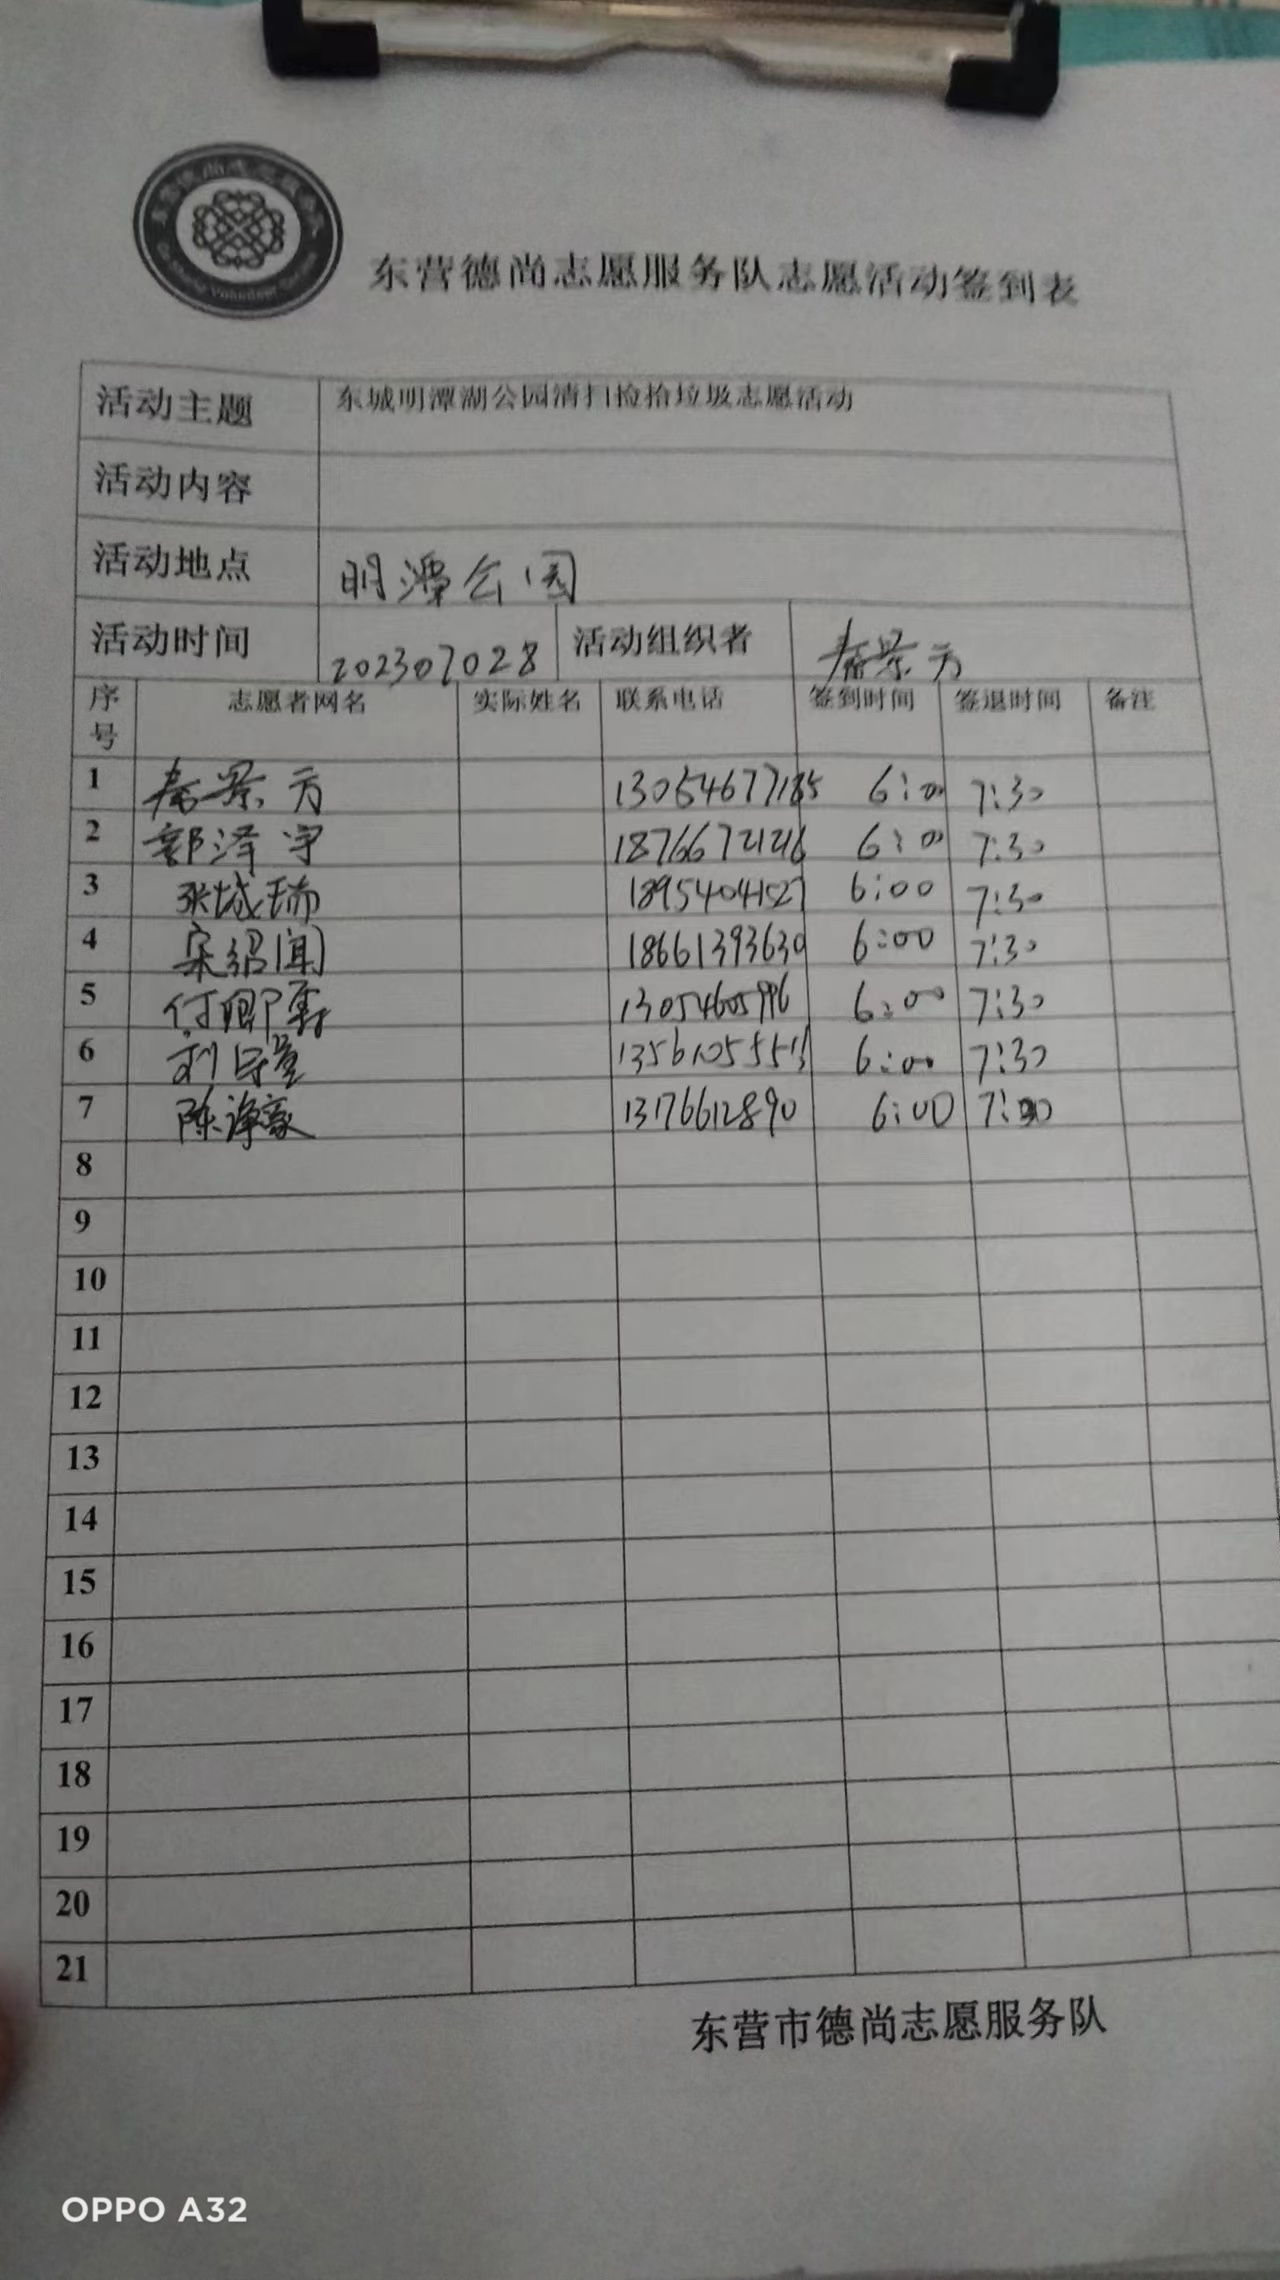 东营德尚志愿服务队志愿活动签到表
活动主题 东城明潭湖公园清扫捡拾垃圾志愿活动
活动内容
活动地点 明潭公园
活动时间 202307028 活动组织者 秦景方
序号 志愿者网名 实际姓名 联系电话 签到时间 签退时间 备注
1 秦景方 13054677185 6:00 7:30
2 郭泽宇 18766721216 6:00 7:30
3 张城瑞 18954041527 6:00 7:30
4 宋绍闻 18661393630 6:00 7:30
5 13054605996 6:00 7:30
6 6:00 7:30
7 13176612890 6:00
8
9
10
11
12
13
14
15
16
17
18
19
20
21
东营市德尚志愿服务队
OPPO A32